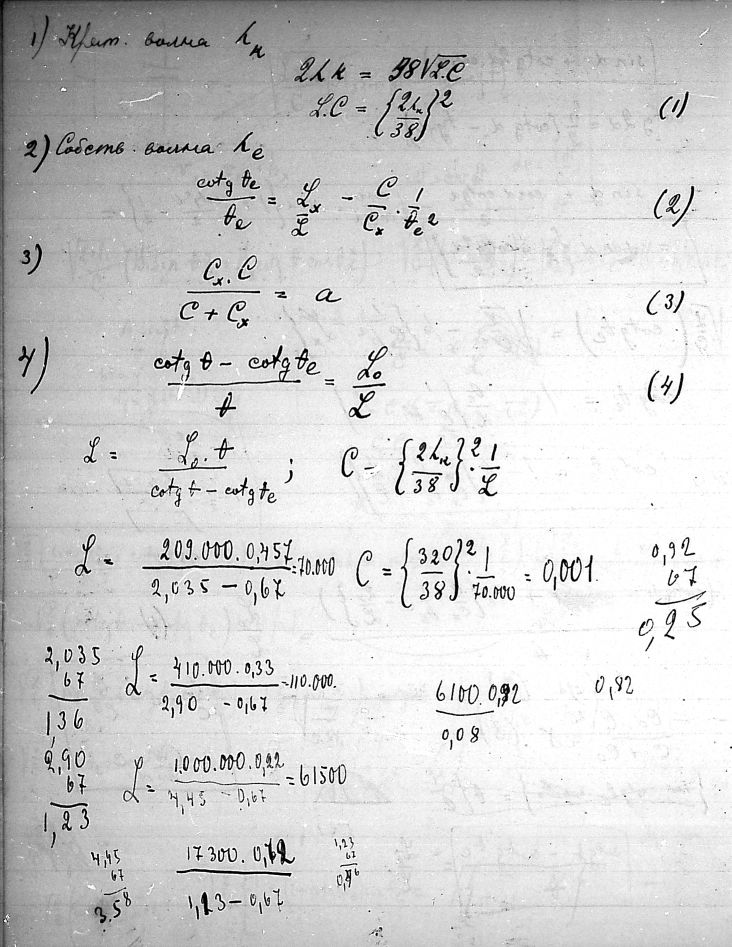 1) Крат. волна λ_к
2λк = 38√L.C
L.C = {2λ_к/38}² (1)
2) Собств. волна λ_е
cotg θ_e / θ_e = L_x / L − C/C_x · 1/θ_e² (2)
3) C_x . C / C + C_x = a (3)
4) cotg θ − cotg θ_e / θ = L_0 / L (4)
L = L_0 . θ / cotg θ − cotg θ_e ; C − {2λ_к/38}² · 1/L
L = 209.000 . 0,457 / 2,035 − 0,67 = 70.000 C = {320/38}² · 1/70.000 = 0,001.
0,92
67
0,25
2,035
67
1,36
L = 410.000 . 0,33 / 2,90 − 0,67 = 110.000.
6100 . 0,92 / 0,08
0,82
2,90
67
1,23
L = 1.000.000 . 0,22 / 4,45 − 0,67 = 61500
4,45
67
3.58
17300 . 0,72 / 1,23 − 0,67
1,23
67